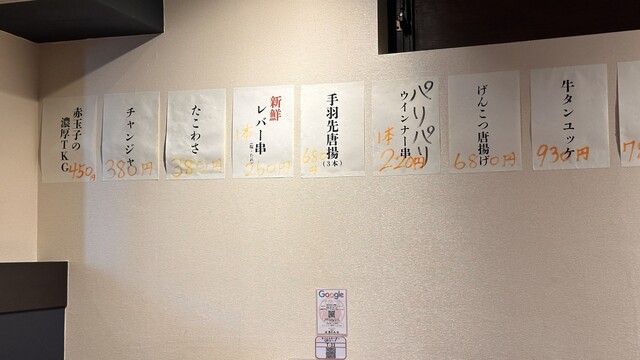 赤玉子の
濃厚TKG
450円
チャンジャ
380円
たこわさ
380円
新鮮
レバー串
1本
手羽先唐揚
(3本)
680円
パリパリ
ウインナー串
1本
220円
げんこつ唐揚げ
680円
牛タンユッケ
930円
Google